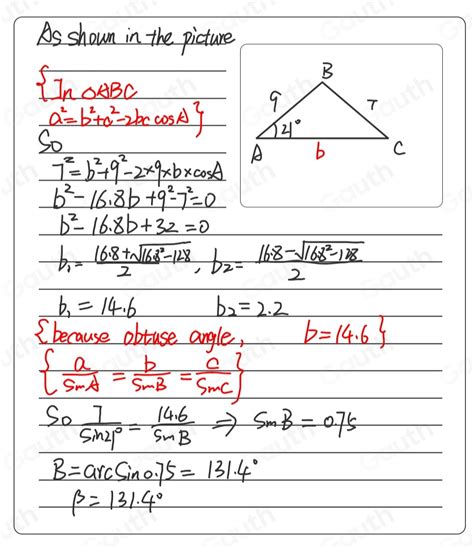 As shown in the picture
{In △ABC
a²=b²+c²-2bc cosA}
So
7²=b²+9²-2×9×b×cosA
b²-16.8b+9²-7²=0
b²-16.8b+32=0
b₁=(16.8+√(16.8²-128))/2, b₂=(16.8-√(16.8²-128))/2
b₁=14.6 b₂=2.2
{because obtuse angle, b=14.6}
{a/SinA = b/SinB = c/SinC}
So 7/Sin21° = 14.6/SinB ⇒ SinB=0.75
B=arcSin0.75=131.4°
β=131.4°
B
9
7
21°
A
b
C
Gauth